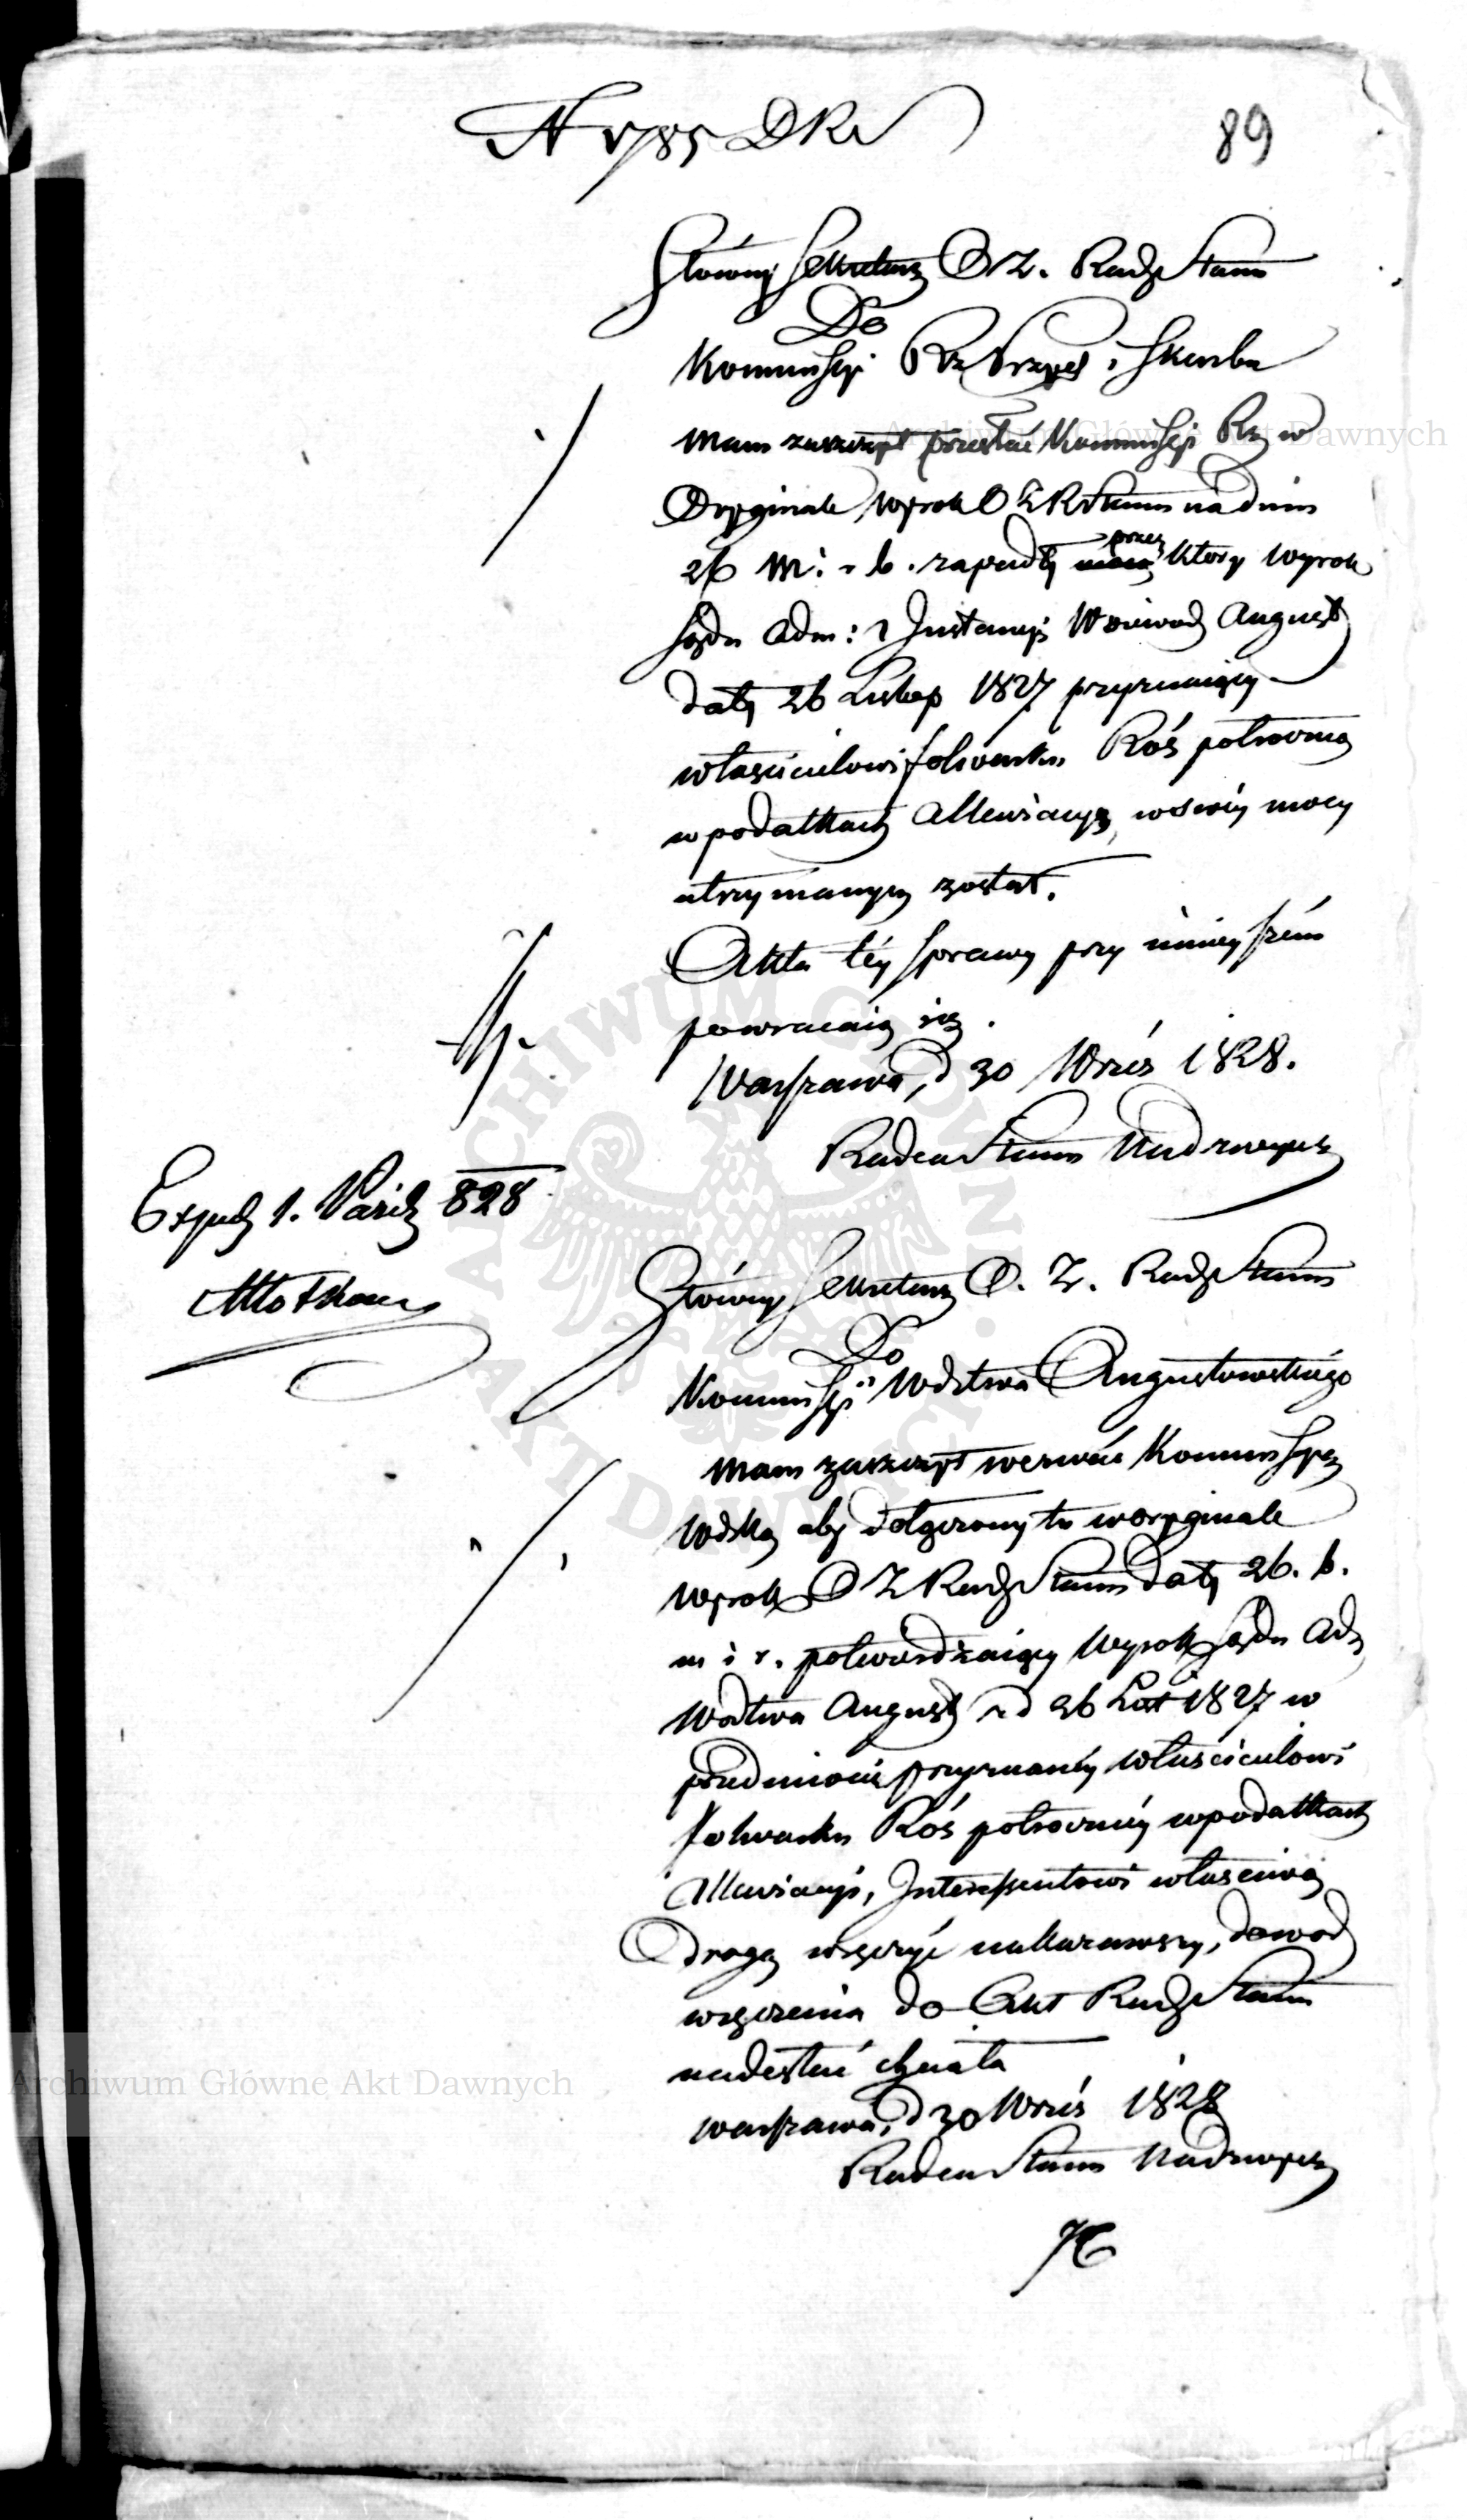 N 1785 DRS
89
Główny Sekretarz O Z. Rady Stanu
Do
Kommissyi Rz Przych i Skarbu
Mam zaszczyt przesłać Kommissyi Rz w
Oryginale Wyrok O Z R Stanu na dniu
26 M. i r. b. zapadły przez który Wyrok
Sądu Adm: I Instancyi Woiewodz August
daty 26 Listop 1827 przyznaiący
właścicielowi folwarku Roś połrowną
w podatkach Allewiacyą, w swéy mocy
utrzymanym został.
Akta téy sprawy przy ninieyszém
powracaią się.
Warszawa, d 30 Wrześ 1828.
Radca Stanu
Exped 1. Paźdz 828
Główny Sekretarz O. Z. Rady Stanu
Do
Kommissyi Wdztwa Augustowskiégo
Mam zaszczyt wezwać Kommissyą
Wdzką aby dołączony tu w oryginale
Wyrok O Z Rady Stanu daty 26. b.
m i r. potwierdzaiący Wyrok Sądu Adm
Wdztwa August z d 26 List 1827 w
przedmiocie przyznanéy właścicielowi
folwarku Roś połrownéy w podatkach
Allewiacyi, Interessentowi właściwą
Drogą wręczyć nakazawszy, dowód
wręczenia do Akt Rady Stanu
nadesłać chciała
Warszawa, d 30 Wrześ 1828
Radca Stanu
Archiwum Główne Akt Dawnych
Archiwum Główne Akt Dawnych
ARCHIWUM GŁÓWNE AKT DAWNYCH